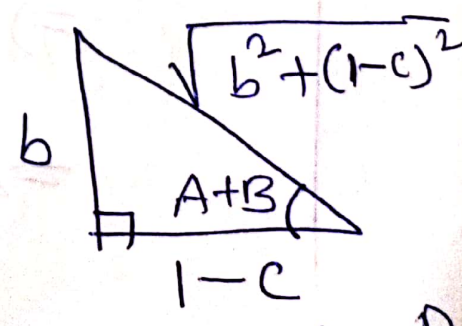 √b²+(1-c)²
b
A+B
1-c